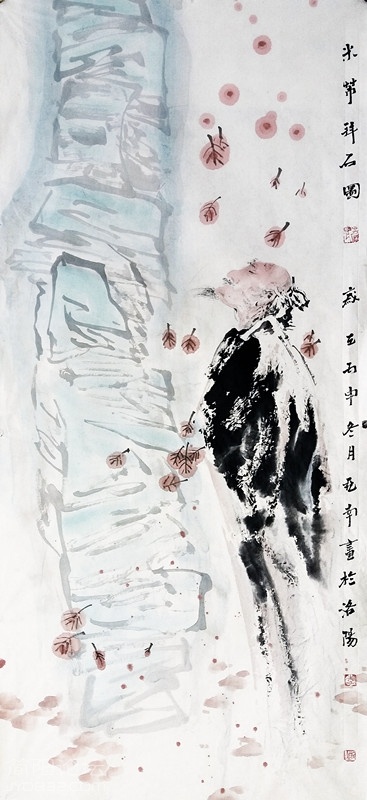 米芾拜石图 岁在丙申冬月亚南画于洛阳